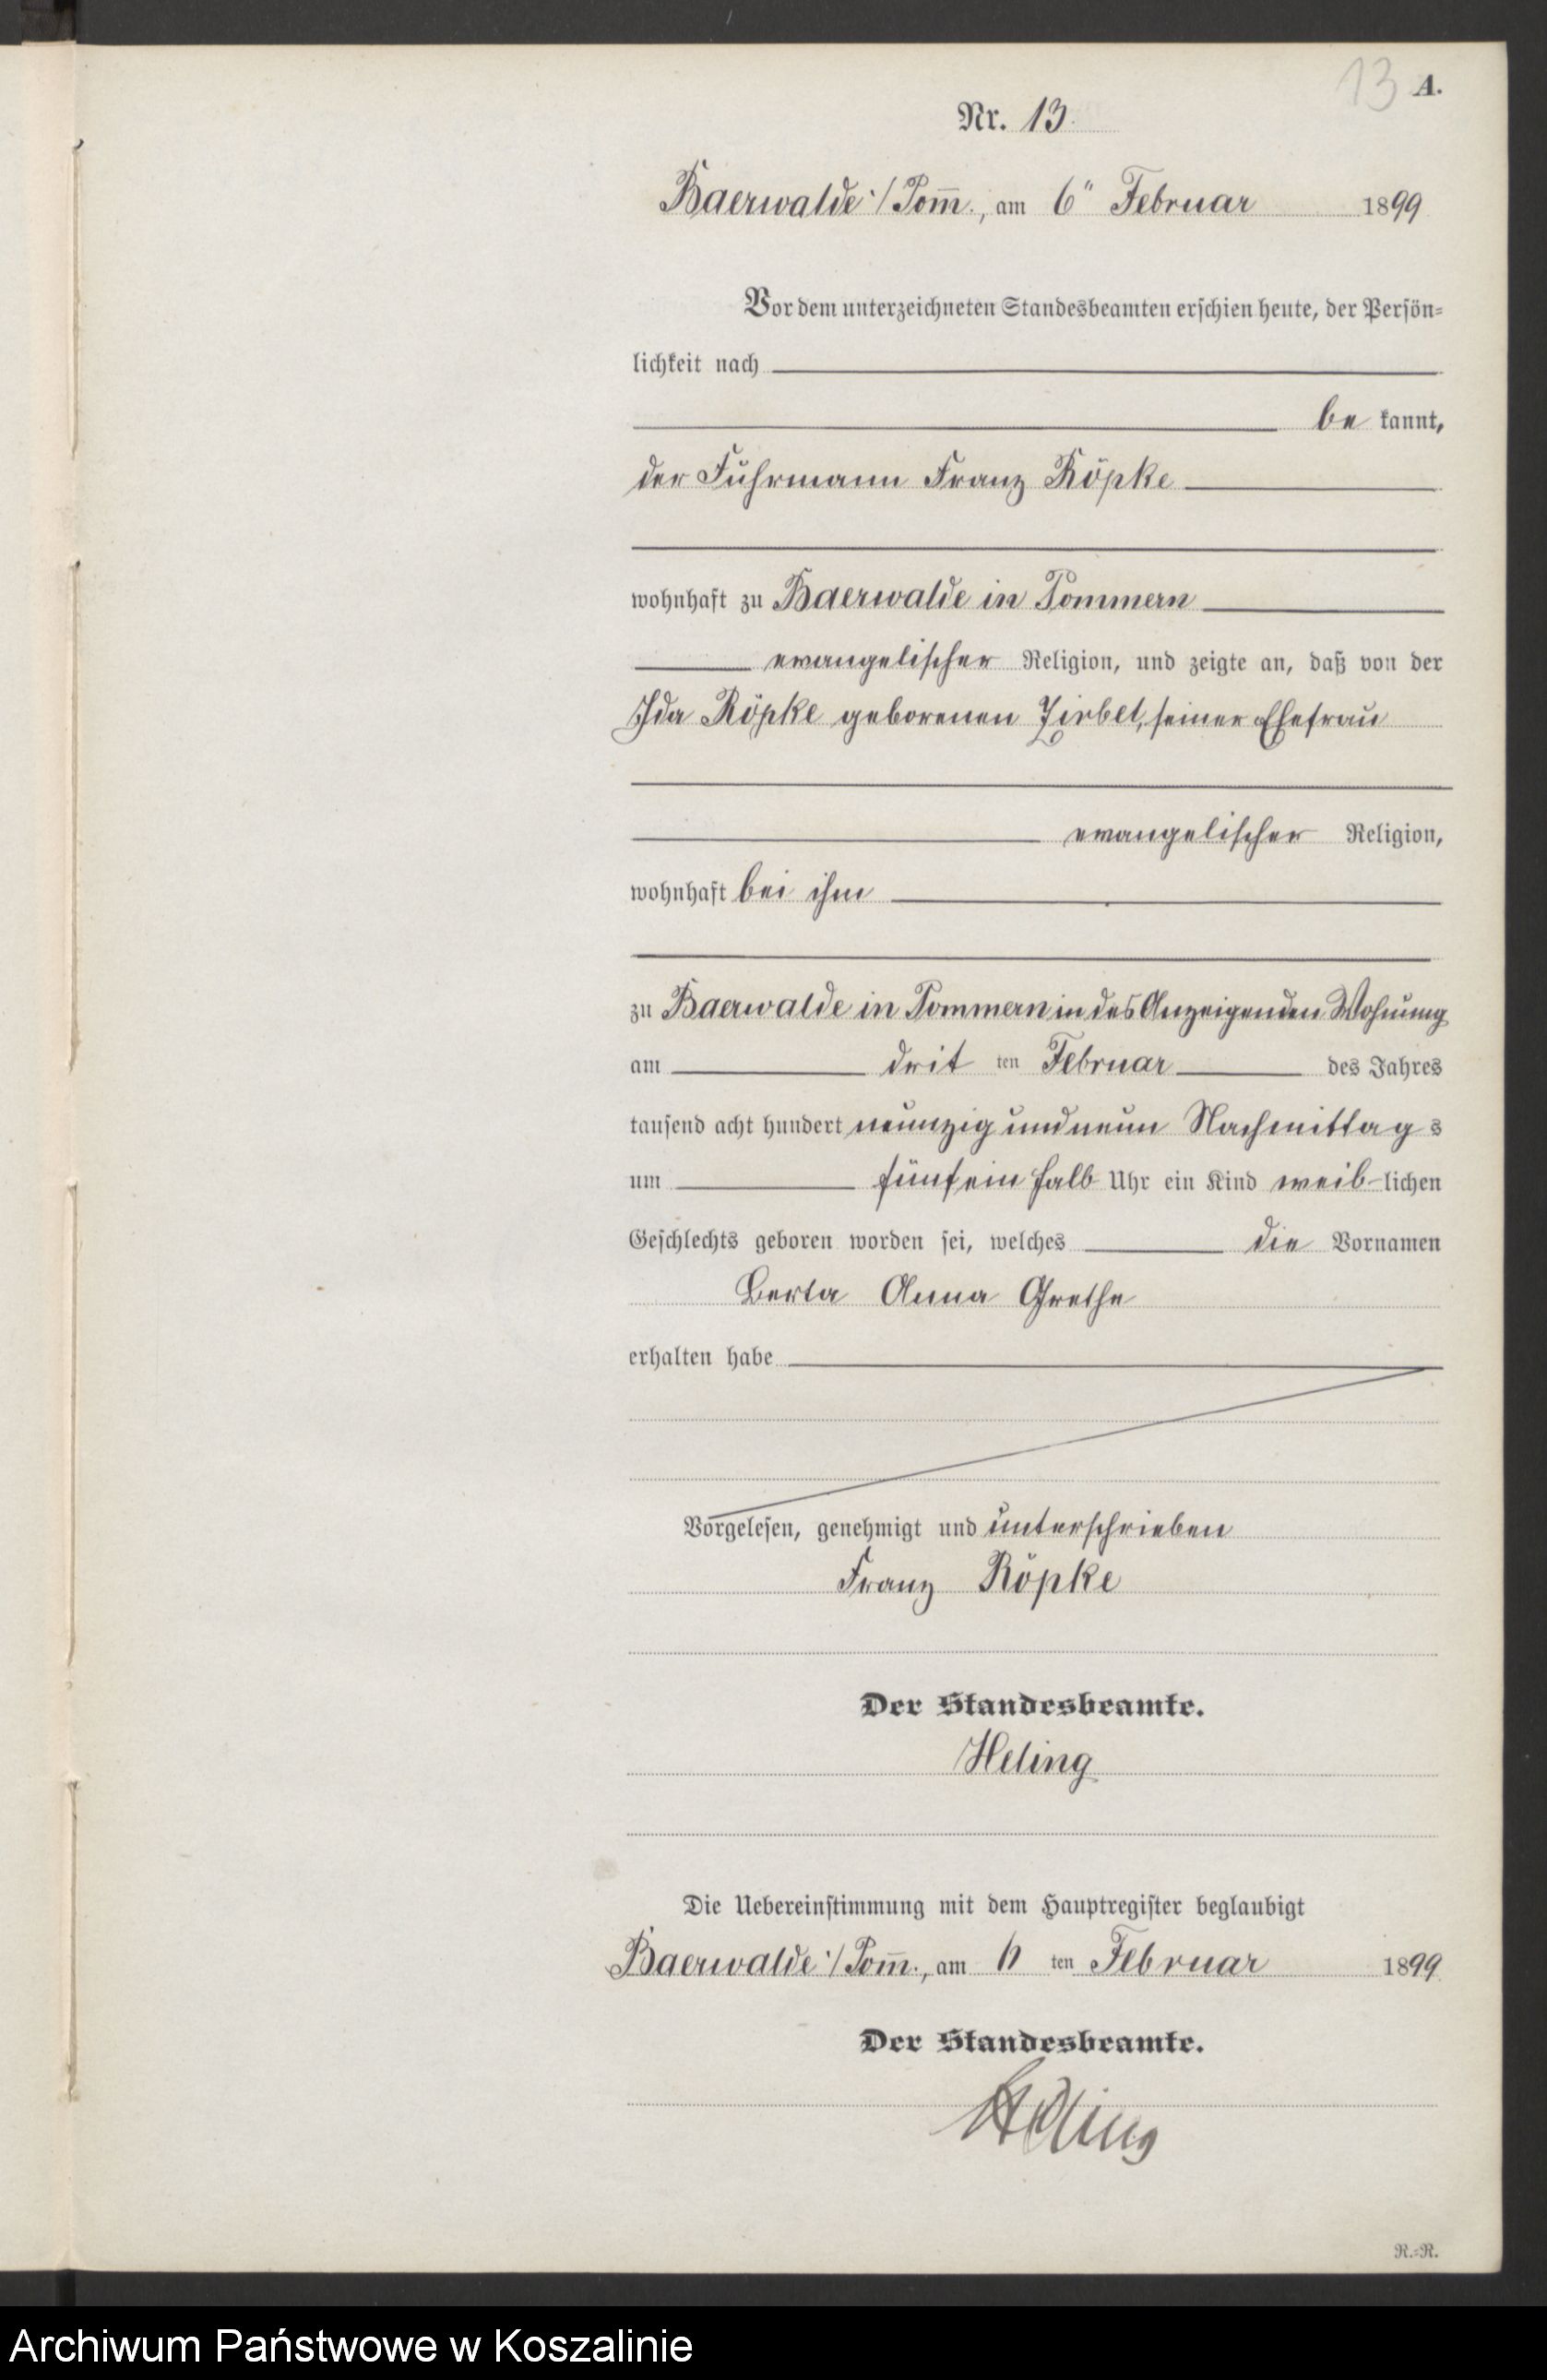 13 A.
Nr. 13.
Baerwalde i/Pom̅., am 6" Februar 1899
Vor dem unterzeichneten Standesbeamten erschien heute, der Persön=
lichkeit nach
be kannt,
der Fuhrmann Franz Röpke
wohnhaft zu Baerwalde in Pommern
evangelischer Religion, und zeigte an, daß von der
Ida Röpke geborenen Zirbel, seiner Ehefrau
evangelischer Religion,
wohnhaft bei ihm
zu Baerwalde in Pommern in des Anzeigenden Wohnung
am drit ten Februar des Jahres
tausend acht hundert neunzig und neun Nachmittag s
um fünf ein halb Uhr ein Kind weib-lichen
Geschlechts geboren worden sei, welches die Vornamen
Berta Anna Grethe
erhalten habe
Vorgelesen, genehmigt und unterschrieben
Franz Röpke
Der Standesbeamte.
Heling
Die Uebereinstimmung mit dem Hauptregister beglaubigt
Baerwalde i/Pom̅., am 6 ten Februar 1899
Der Standesbeamte.
Heling
R.=R.
Archiwum Państwowe w Koszalinie